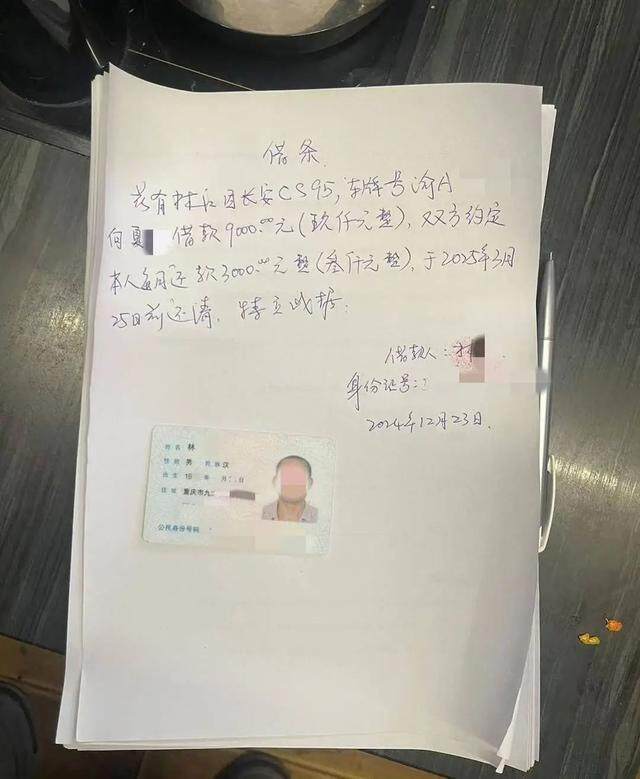 借条
兹有林 因长安CS95,车牌号渝A
向夏 借款9000.00元(玖仟元整),双方约定
本人每月还款3000.00元整(叁仟元整),于2025年3月
25日前还清,特立此据.
借款人:林
身份证号:
2024年12月23日.
姓名 林
性别 男 民族 汉
出生 19 年 月 日
住址 重庆市九
公民身份号码